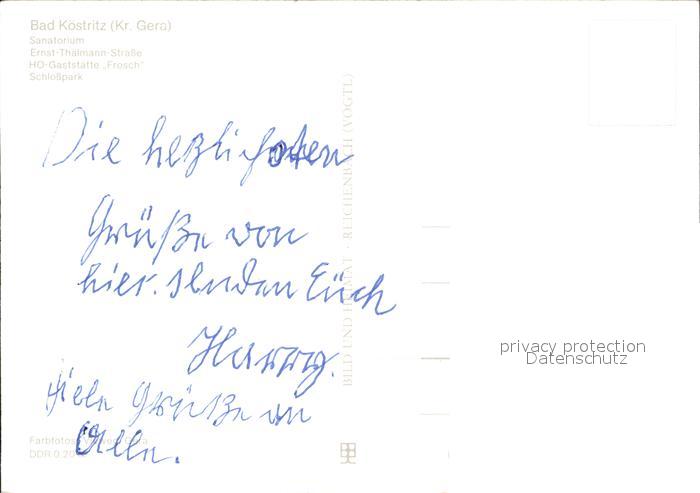 Bad Köstritz (Kr. Gera)
Sanatorium
Ernst-Thälmann-Straße
HO-Gaststätte „Frosch"
Schloßpark
Die herzlichsten
Grüße von
hier. senden Euch
Viele Grüße an
Alle.
Farbfotos Gera
DDR 0.20
BILD UND HEIMAT · REICHENBACH (VOGTL)
privacy protection
Datenschutz